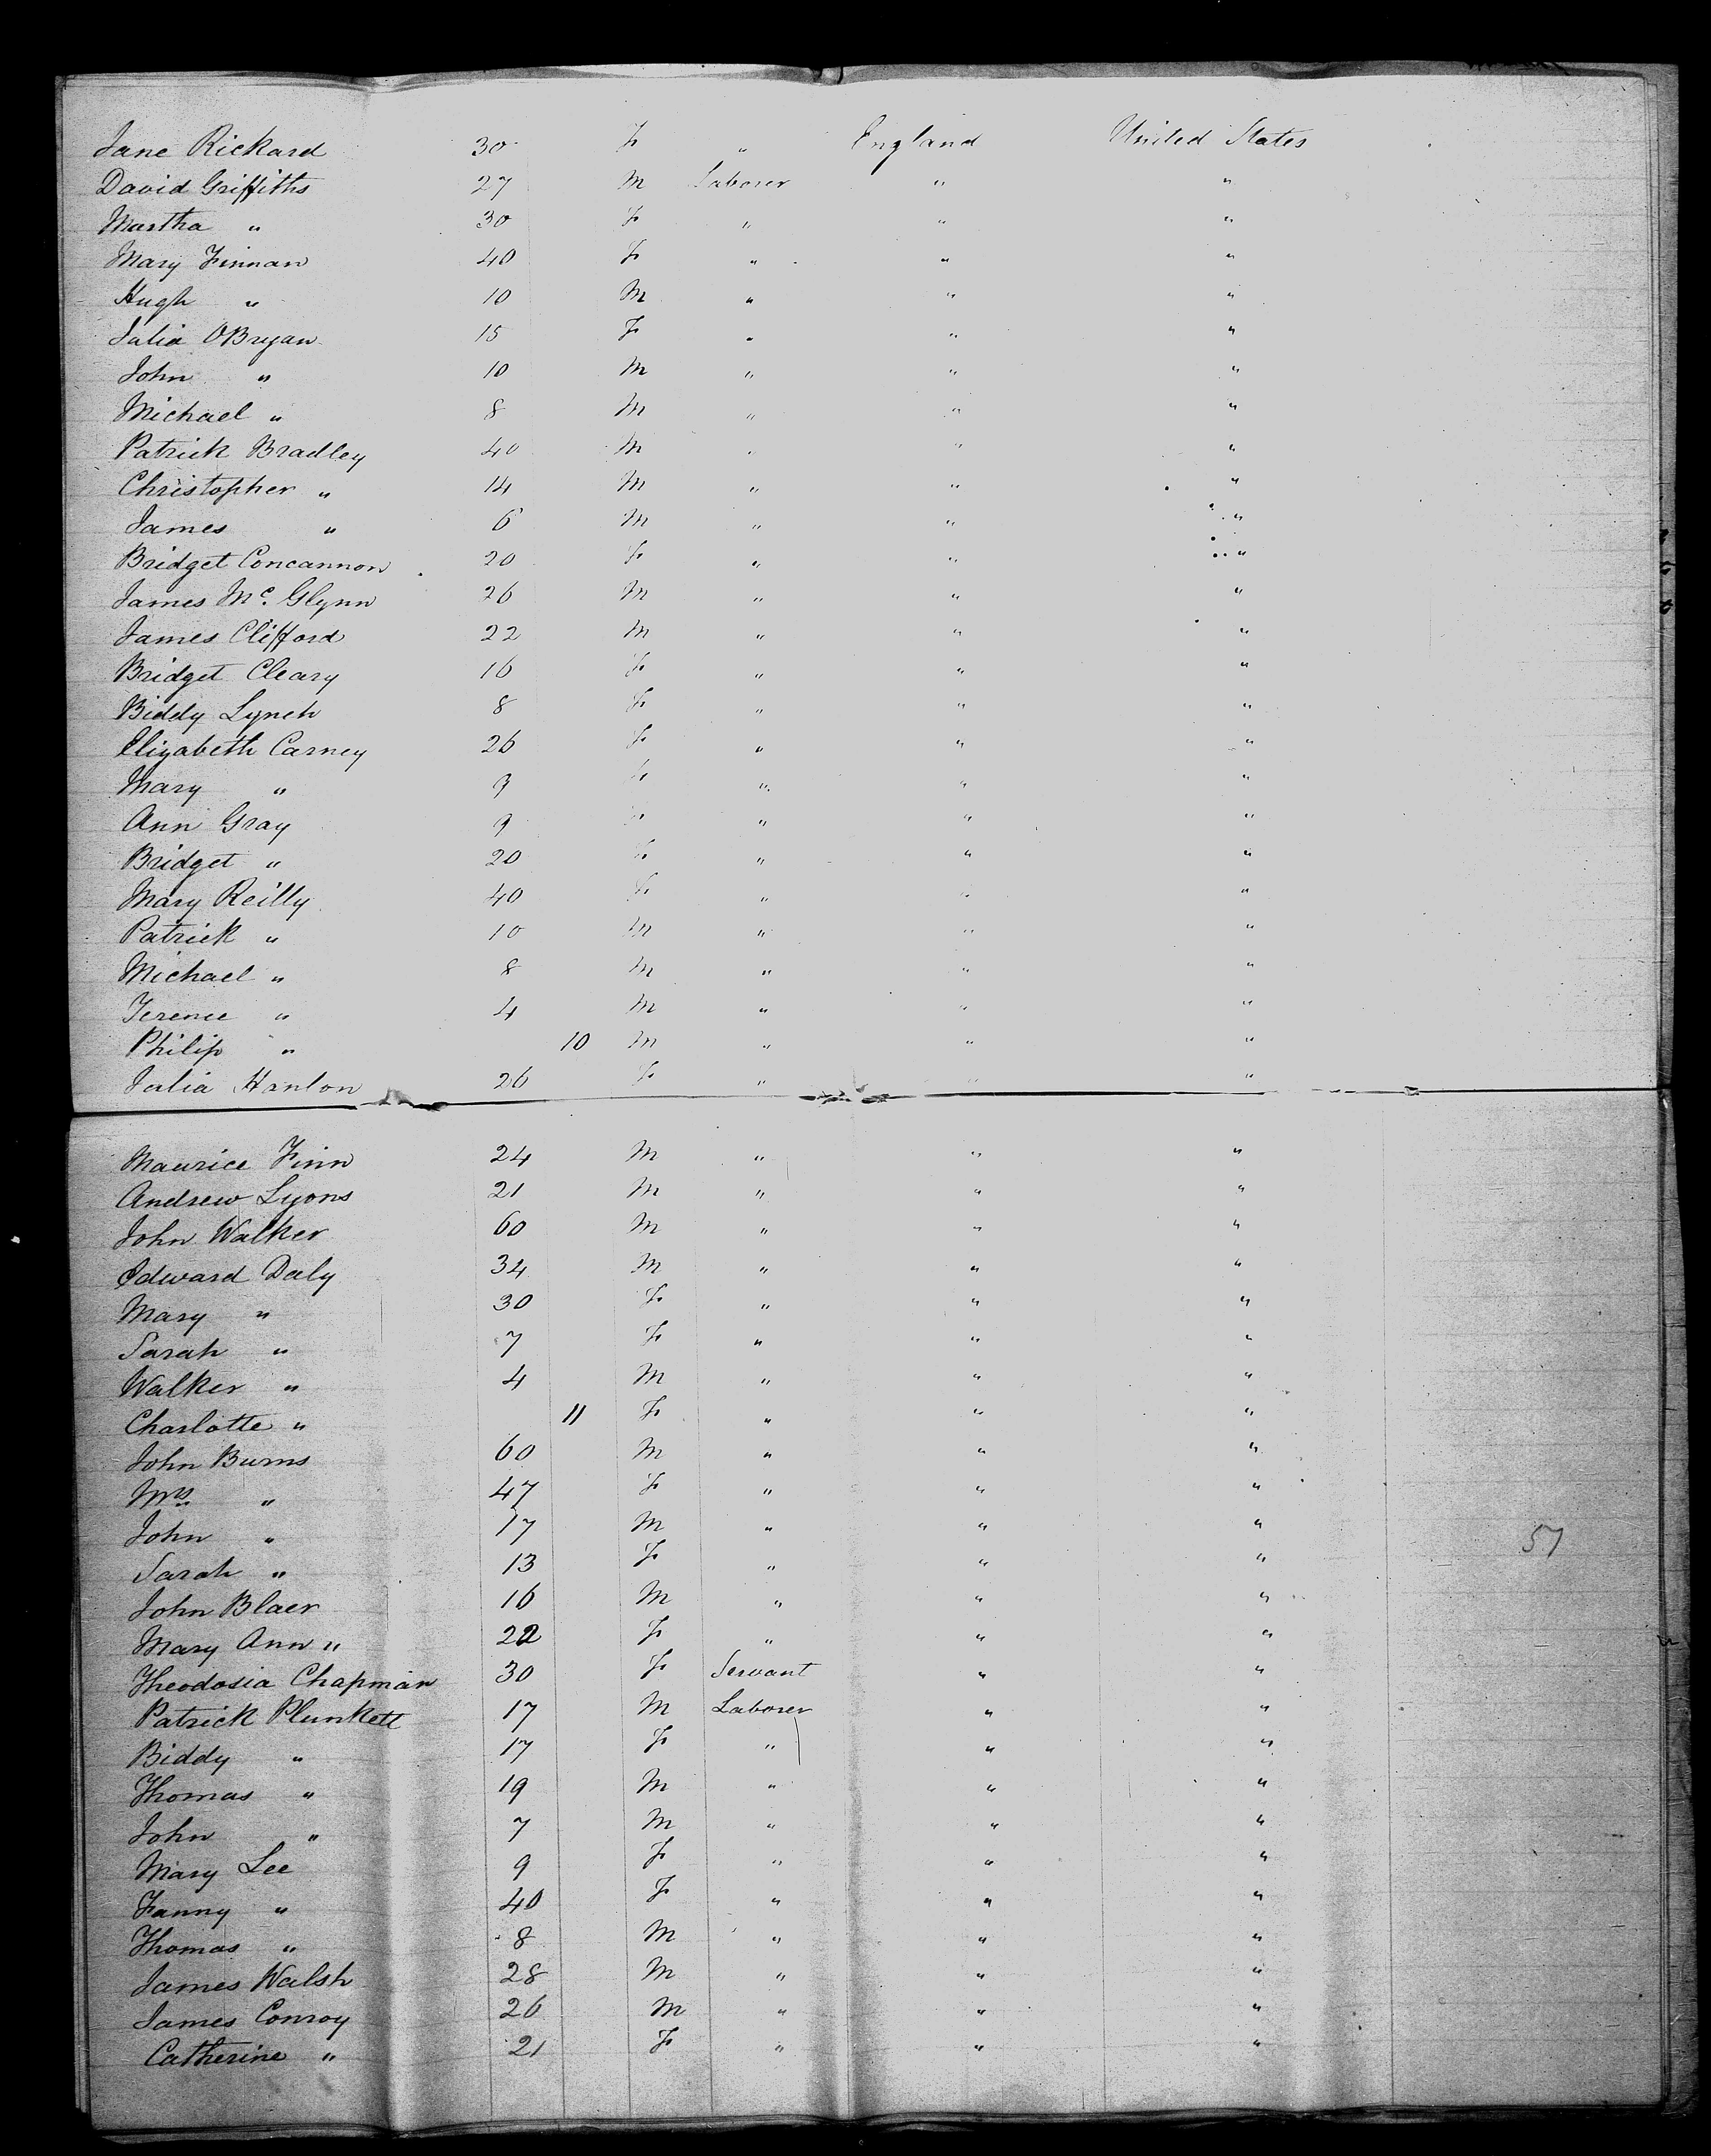 Jane Rickard 30 F " England United States
David Griffiths 27 M Laborer " "
Martha " 30 F " " "
Mary Finnan 40 F " " "
Hugh " 10 M " " "
Julia OBryan 15 F " " "
John " 10 M " " "
Michael " 8 M " " "
Patrick Bradley 40 M " " "
Christopher " 14 M " " "
James " 6 M " " "
Bridget Concannon 20 F " " "
James Mc. Glynn 26 M " " "
James Clifford 22 M " " "
Bridget Cleary 16 F " " "
Biddy Lynch 8 F " " "
Elizabeth Carney 26 F " " "
Mary " 9 F " " "
Ann Gray 9 F " " "
Bridget " 20 F " " "
Mary Reilly 40 F " " "
Patrick " 10 M " " "
Michael " 8 M " " "
Terence " 4 M " " "
Philip " 10 M " " "
Julia Hanlon 26 F " " "
Maurice Finn 24 M " " "
Andrew Lyons 21 M " " "
John Walker 60 M " " "
Edward Daly 34 M " " "
Mary " 30 F " " "
Sarah " 7 F " " "
Walker " 4 M " " "
Charlotte " 11 F " " "
John Burns 60 M " " "
Mrs " 47 F " " "
John " 17 M " " " 57
Sarah " 13 F " " "
John Blaer 16 M " " "
Mary Ann " 22 F " " "
Theodosia Chapman 30 F Servant " "
Patrick Plunkett 17 M Laborer " "
Biddy " 17 F " " "
Thomas " 19 M " " "
John " 7 M " " "
Mary Lee 9 F " " "
Fanny " 40 F " " "
Thomas " 8 M " " "
James Walsh 28 M " " "
James Conroy 26 M " " "
Catherine " 21 F " " "